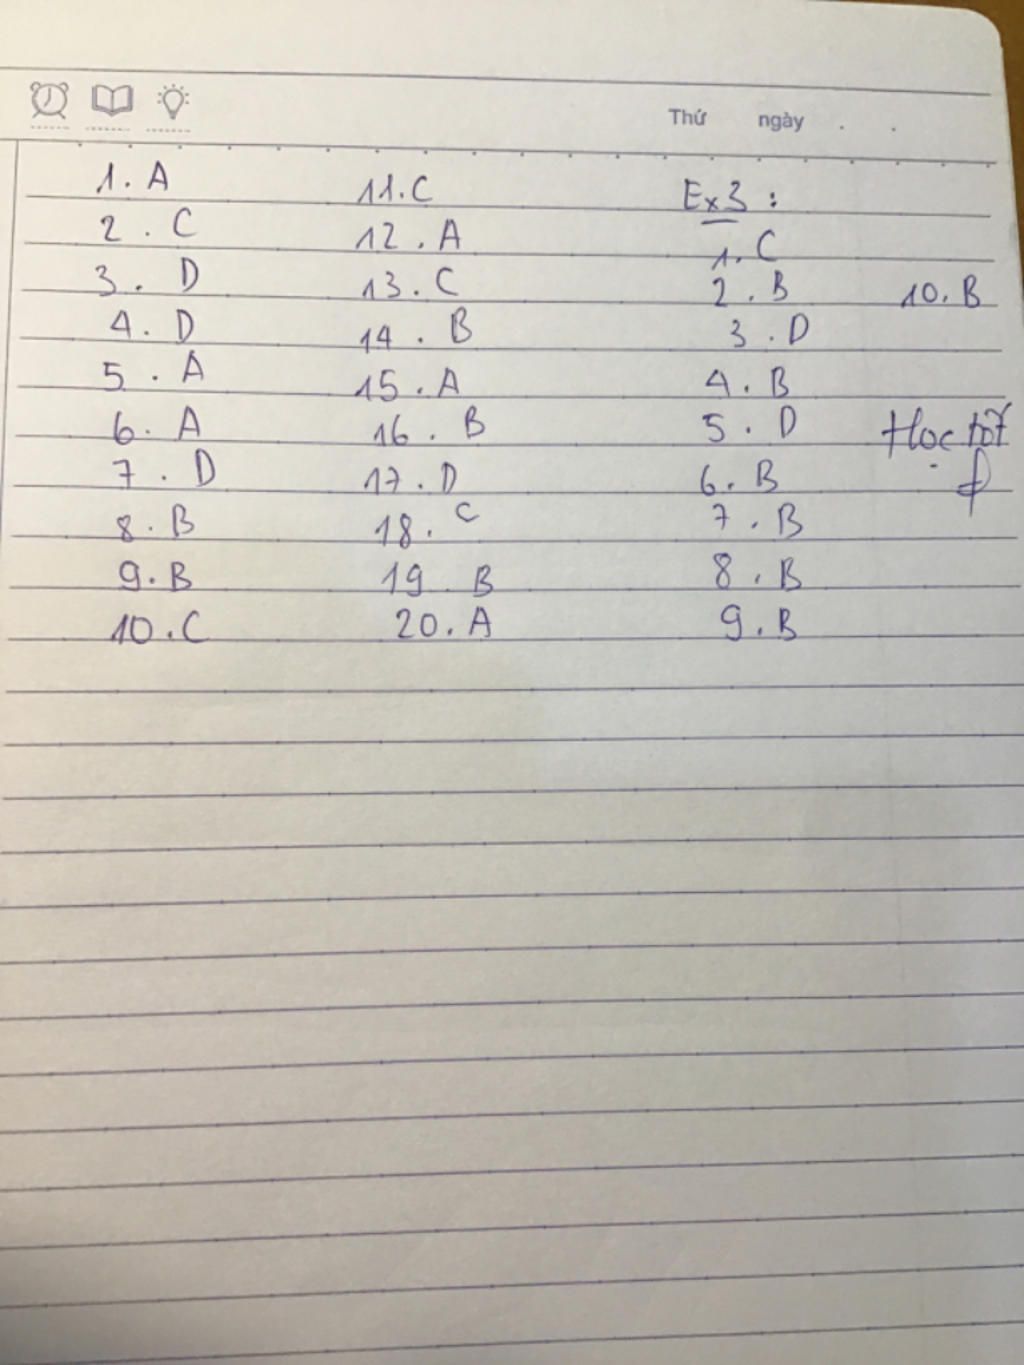 Thứ ngày . .
1. A
2. C
3. D
4. D
5. A
6. A
7. D
8. B
9. B
10. C
11. C
12. A
13. C
14. B
15. A
16. B
17. D
18. C
19 B
20. A
Ex3 :
1. C
2. B
3. D
4. B
5. D
6. B
7. B
8. B
9. B
10. B
Học tốt